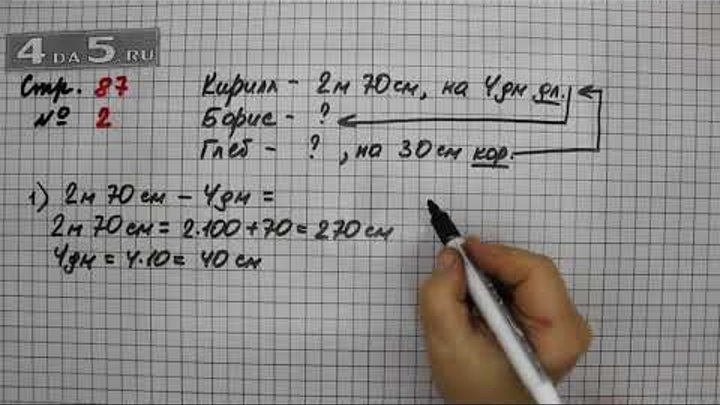 4 DA 5.RU
Стр. 87
№ 2
Кирилл - 2м 70см, на 4дм дл.
Борис - ?
Глеб - ?, на 30см кор.
1) 2м 70см - 4дм =
2м 70см = 2·100+70=270см
4дм = 4·10= 40см